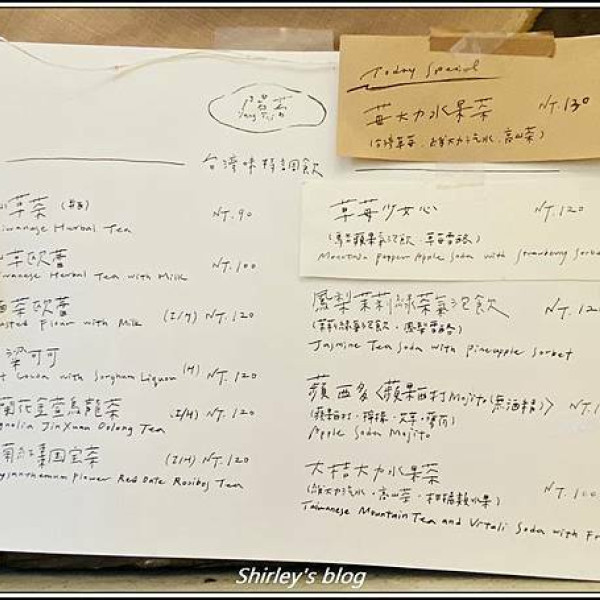 陽居
Yang Tsu
台湾味特調飲
草茶
NT.90
iwanese Herbal Tea
草欧蕾
NT.100
iwanese Herbal Tea with Milk
茶欧蕾
(I/H) NT.120
asted Flour with Milk
梁可可
(H) NT.120
t Cocoa with Sorghum Liquor
蘭花金萱烏龍茶
(I/H) NT.120
gnolia JinXuan Oolong Tea
菊紅棗国宝茶
(I/H) NT.120
ysanthemum Flower Red Date Rooibos Tea
Today Special
莓大力水果茶 NT.130
(台湾草莓、維大力汽水、高山茶)
草莓少女心 NT.120
(馬告蘋果氣泡飲、草莓雪酪)
Mountain Pepper Apple Soda with Strawberry Sorbe
鳳梨茉莉綠茶氣泡飲 NT.12
(茉莉綠氣泡飲、鳳梨雪酪)
Jasmine Tea Soda with Pineapple Sorbet
蘋西多〈蘋果西打Mojito(無酒精)〉 NT.1
(蘋果西打、檸檬、薄荷)
Apple Soda Mojito
大桔大力水果茶 NT.100
(維大力汽水、高山茶、柑橘類水果)
Taiwanese Mountain Tea and Vitali Soda with Fr
Shirley's blog